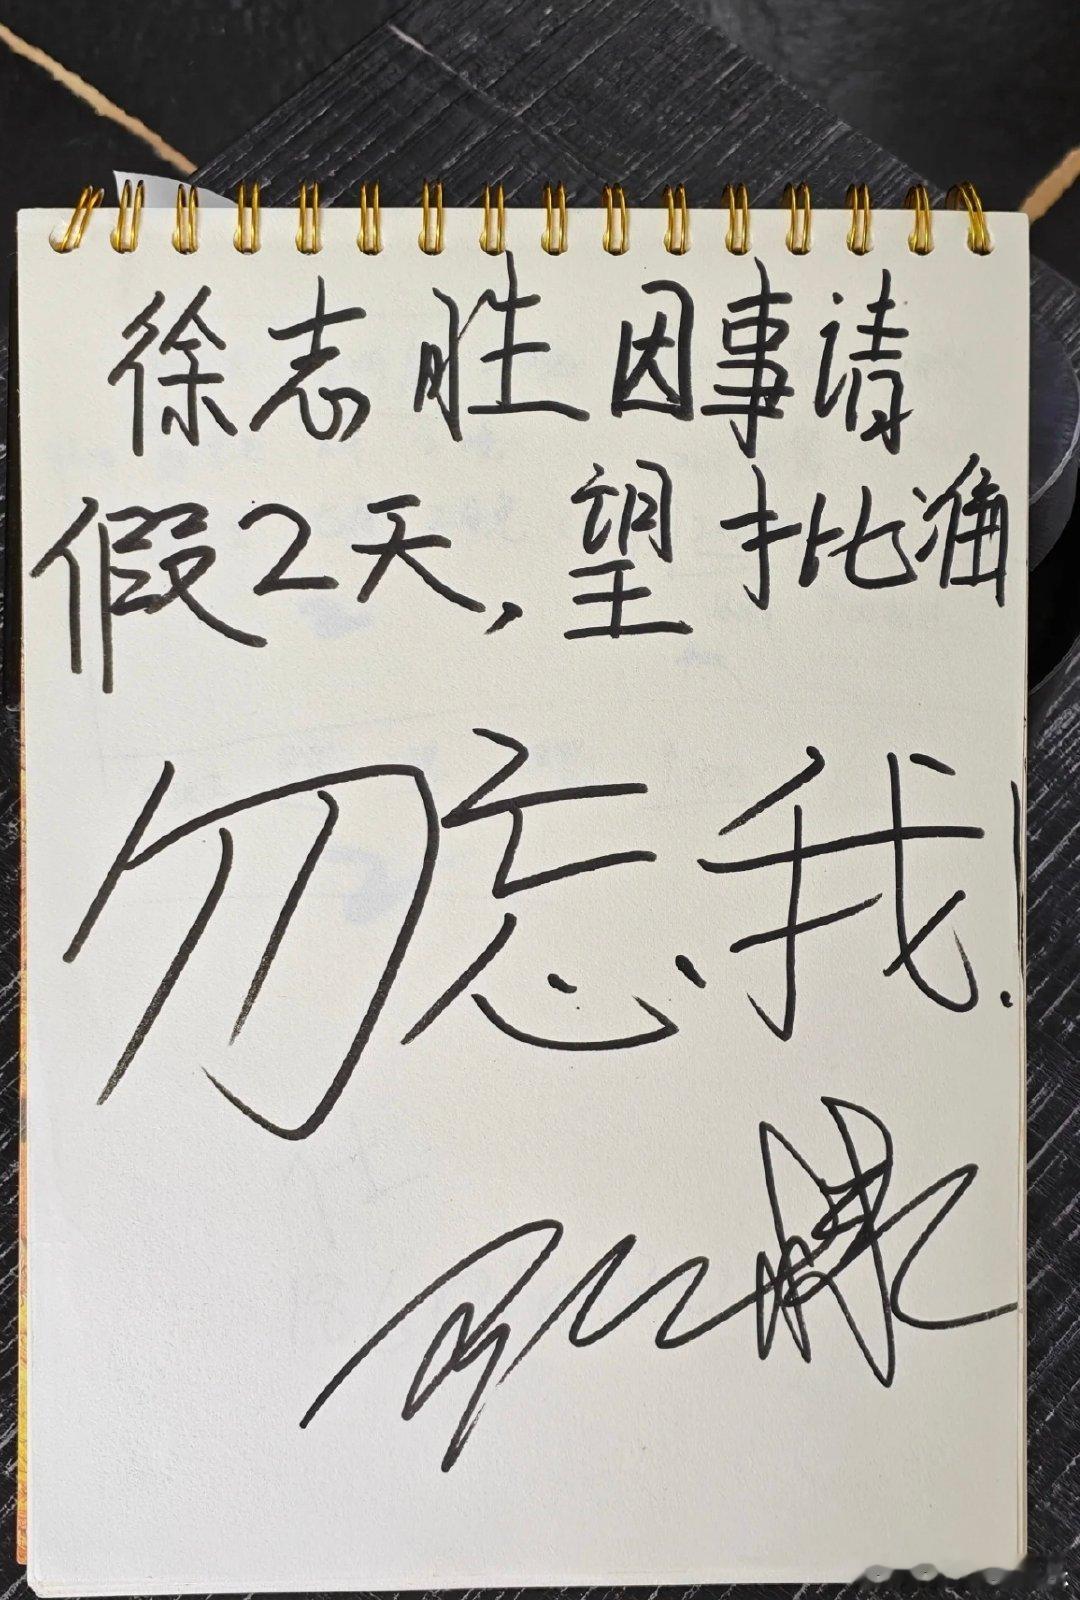 徐志胜因事请
假2天,望批准
勿忘我!